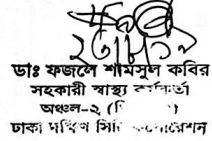 ডাঃ ফজলে শামসুল কবির
সহকারী স্বাস্থ্য কর্মকর্তা
অঞ্চল-২
ঢাকা দক্ষিণ সিটি কর্পোরেশন